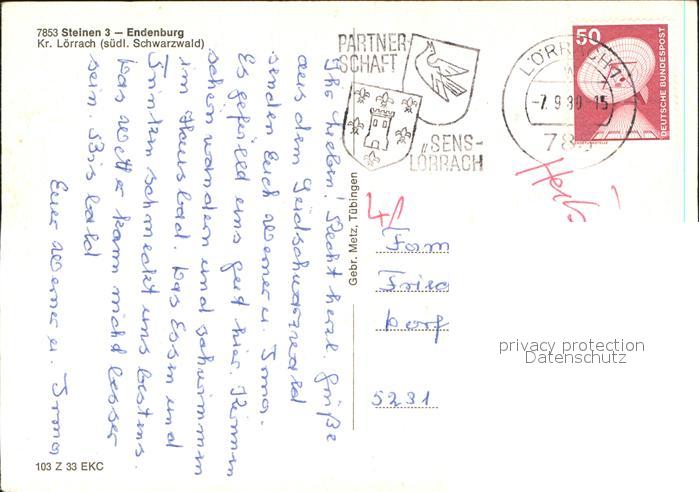 7853 Steinen 3 – Endenburg
Kr. Lörrach (südl. Schwarzwald)
Ihr Lieben! Recht herzl. Grüße
aus dem Südschwarzwald
senden Euch Werner u. Irma.
Es gefällt uns gut hier. Können
schön wandern und schwimmen
im Hausbad. Das Essen und
Trinken schmeckt uns bestens.
Das Wetter kann nicht besser
sein. Bis bald
Euer Werner u. Irma
103 Z 33 EKC
Gebr. Metz, Tübingen
PARTNER-
SCHAFT
„SENS-
LÖRRACH
LÖRRACH 1
-7.9.80-15
78
50
DEUTSCHE BUNDESPOST
Fam
Fried
Dorf
5231
privacy protection
Datenschutz